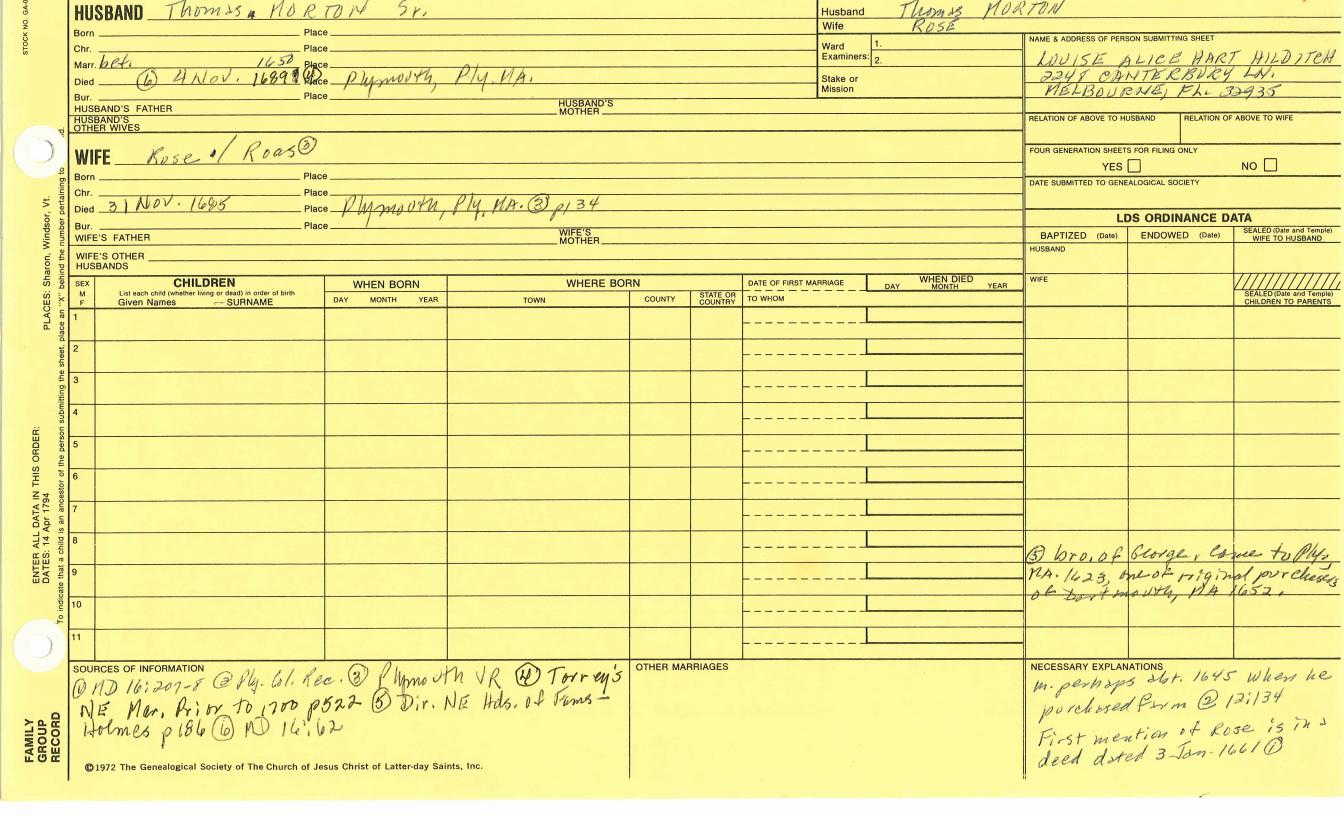 STOCK NO. GA-0
HUSBAND Thomas MORTON Sr.
Born Place
Chr. Place
Marr. bef. 1650 Place
Died ⑥ 4 Nov. 1689 ④ Place Plymouth, Ply. MA.
Bur. Place
HUSBAND'S FATHER HUSBAND'S MOTHER
HUSBAND'S OTHER WIVES
Husband Thomas MORTON
Wife ROSE
Ward Examiners: 1.
2.
Stake or Mission
NAME & ADDRESS OF PERSON SUBMITTING SHEET
LOUISE ALICE HART HILDITCH
2248 CANTERBURY LN.
MELBOURNE, FL. 32935
RELATION OF ABOVE TO HUSBAND RELATION OF ABOVE TO WIFE
FOUR GENERATION SHEETS FOR FILING ONLY
YES NO
DATE SUBMITTED TO GENEALOGICAL SOCIETY
WIFE Rose / Roas ③
Born Place
Chr. Place
Died 31 Nov. 1685 Place Plymouth, Ply, MA. ③ p134
Bur. Place
WIFE'S FATHER WIFE'S MOTHER
WIFE'S OTHER HUSBANDS
LDS ORDINANCE DATA
BAPTIZED (Date) ENDOWED (Date) SEALED (Date and Temple) WIFE TO HUSBAND
HUSBAND
WIFE
SEALED (Date and Temple) CHILDREN TO PARENTS
SEX M F
CHILDREN
List each child (whether living or dead) in order of birth
Given Names SURNAME
WHEN BORN
DAY MONTH YEAR
WHERE BORN
TOWN COUNTY STATE OR COUNTRY
DATE OF FIRST MARRIAGE
TO WHOM
WHEN DIED
DAY MONTH YEAR
1
2
3
4
5
6
7
8
9
10
11
⑤ bro. of George, came to Ply,
MA. 1623, one of original purchasers
of Dartmouth, MA 1652.
PLACES: Sharon, Windsor, Vt.
ENTER ALL DATA IN THIS ORDER:
DATES: 14 Apr 1794
To indicate that a child is an ancestor of the person submitting the sheet, place an "X" behind the number pertaining to
FAMILY GROUP RECORD
SOURCES OF INFORMATION
① MD 16:207-8 ② Ply. Col. Rec. ③ Plymouth VR ④ Torrey's
NE Mar. Prior to 1700 p522 ⑤ Dir. NE Hds. of Fams-
Holmes p186 ⑥ MD 16:62
OTHER MARRIAGES
NECESSARY EXPLANATIONS
m. perhaps abt. 1645 when he
purchased farm ② 12:134
First mention of Rose is in a
deed dated 3 Jan. 1661 ①
©1972 The Genealogical Society of The Church of Jesus Christ of Latter-day Saints, Inc.